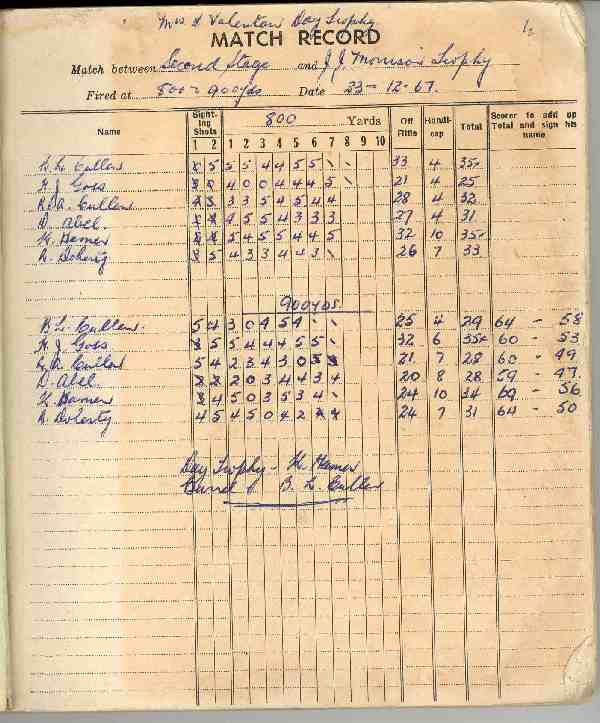 Mrs & Valentan Day Trophy
MATCH RECORD
Match between Second Stage and J. J. Morrison Trophy
Fired at 800 - 900yds Date 23-12-67.
Name Sighting Shots 800 Yards Off Rifle Handicap Total Scorer to add up Total and sign his name
1 2 1 2 3 4 5 6 7 8 9 10
Cullen 5 5 5 4 4 5 5 \ \ 33 4 35
J Goss 4 0 0 4 4 4 5 \ 21 4 25
A. Cullen 3 3 5 4 5 4 4 28 4 32
D. Abel. 4 5 5 4 3 3 3 27 4 31
Hames 5 4 5 5 4 4 5 32 10 35
5 4 3 3 4 4 3 \ 26 7 33
900yds
B. L. Cullen. 5 4 3 0 4 5 4 \ \ 25 4 29 64 - 58
J Goss 5 5 4 4 4 5 5 \ 32 6 35 60 - 53
A. Cullen 5 4 2 3 4 3 0 21 7 28 60 - 49
D. Abel. 2 0 3 4 4 3 4 20 8 28 59 - 47
Hames 4 5 0 3 5 3 4 \ 24 10 34 69 - 56
Doherty 4 5 4 5 0 4 2 24 7 31 64 - 50
Day Trophy - H. Hames
B. L. Cullen